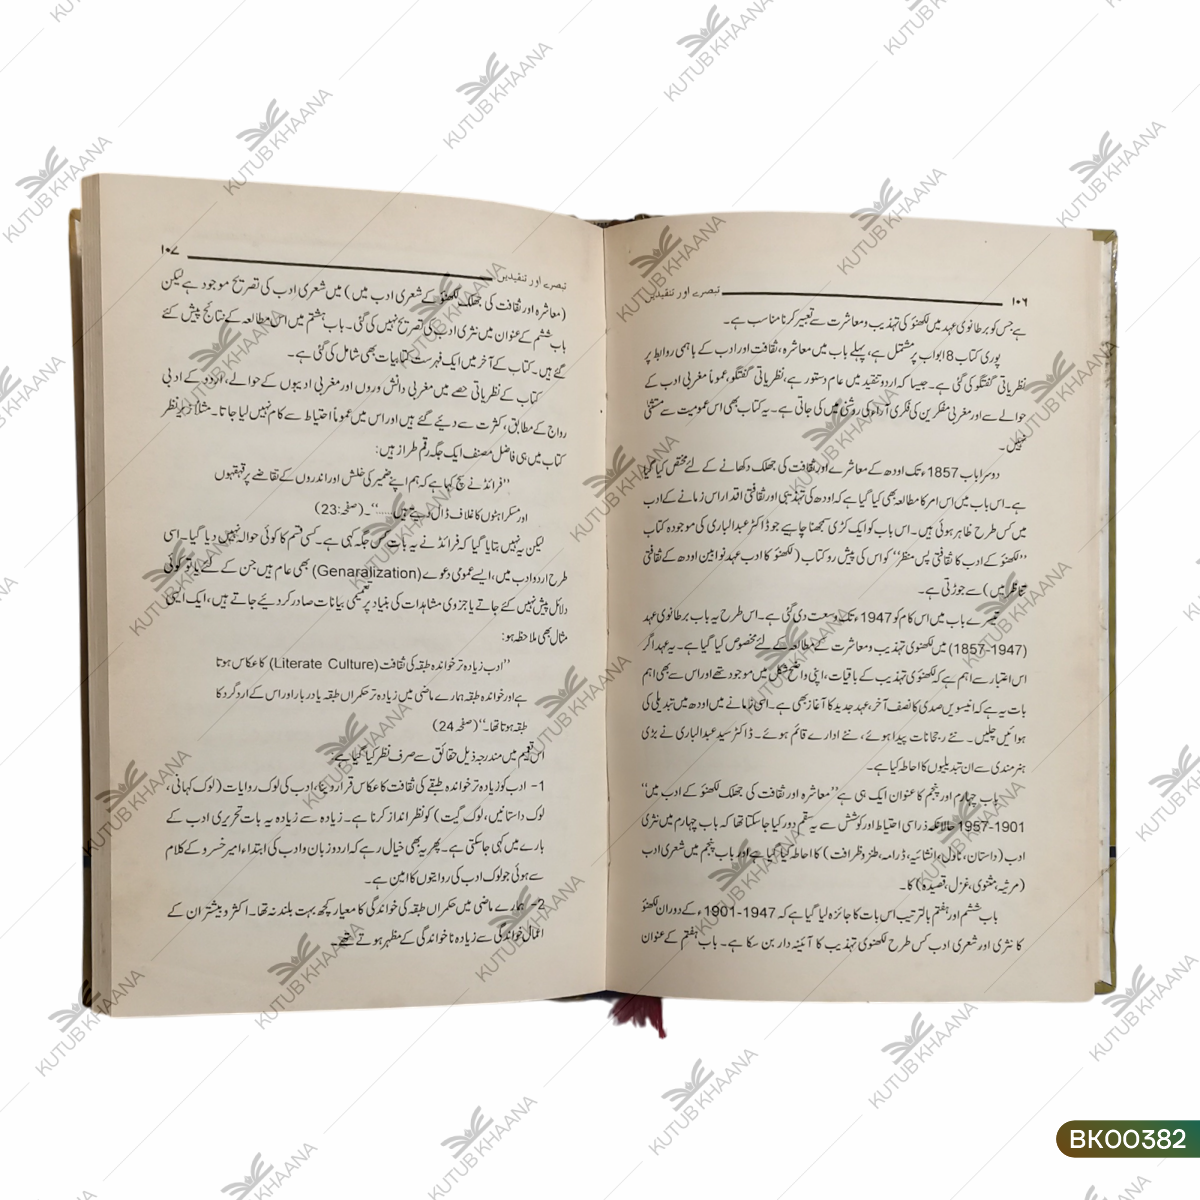 تبصرے اور تنقیدیں ۱۰۶
ہے جس کو برطانوی عہد میں لکھنؤ کی تہذیب و معاشرت سے تعبیر کرنا مناسب ہے۔
پوری کتاب 8 ابواب پر مشتمل ہے، پہلے باب میں معاشرہ، ثقافت اور ادب کے باہمی روابط پر
نظریاتی گفتگو کی گئی ہے۔ جیسا کہ اردو تنقید میں عام دستور ہے، نظریاتی گفتگو، عموماً مغربی ادب کے
حوالے سے اور مغربی مفکرین کی فکری آراء کی روشنی میں کی جاتی ہے۔ یہ کتاب بھی اس عمومیت سے مستثنیٰ
نہیں۔
دوسرا باب 1857ء تک اودھ کے معاشرے اور ثقافت کی جھلک دکھانے کے لئے مختص کیا گیا
ہے۔ اس باب میں اس امر کا مطالعہ بھی کیا گیا ہے کہ اودھ کی تہذیبی اور ثقافتی اقدار اس زمانے کے ادب
میں کس طرح ظاہر ہوئی ہیں۔ اس باب کو ایک کڑی سمجھنا چاہیے جو ڈاکٹر عبدالباری کی موجودہ کتاب
”لکھنؤ کے ادب کا ثقافتی پس منظر“ کو اس کی پیش رو کتاب (لکھنؤ کا ادب عہد نوابین اودھ کے ثقافتی
تناظر میں) سے جوڑتی ہے۔
تیسرے باب میں اس کام کو 1947ء تک وسعت دی گئی ہے۔ اس طرح یہ باب برطانوی عہد
(1857-1947) میں لکھنوی تہذیب و معاشرت کے مطالعہ کے لئے مخصوص کیا گیا ہے۔ یہ عہد اگر
اس اعتبار سے اہم ہے کہ لکھنوی تہذیب کے باقیات، اپنی واضح شکل میں موجود تھے اور اس سے بھی اہم
بات یہ ہے کہ انیسویں صدی کا نصف آخر، عہد جدید کا آغاز بھی ہے۔ اسی زمانے میں اودھ میں تبدیلی کی
ہوائیں چلیں۔ نئے رجحانات پیدا ہوئے، نئے ادارے قائم ہوئے۔ ڈاکٹر سید عبدالباری نے بڑی
ہنر مندی سے ان تبدیلیوں کا احاطہ کیا ہے۔
باب چہارم اور پنجم کا عنوان ایک ہی ہے ”معاشرہ اور ثقافت کی جھلک لکھنؤ کے ادب میں“
1901-1957 حالانکہ ذرا سی احتیاط اور کوشش سے یہ سقم دور کیا جا سکتا تھا کہ باب چہارم میں نثری
ادب (داستان، ناول، انشائیہ، ڈرامہ، طنز و ظرافت) کا احاطہ کیا گیا ہے اور باب پنجم میں شعری ادب
(مرثیہ، مثنوی، غزل، قصیدہ) کا۔
باب ششم اور ہفتم بالترتیب اس بات کا جائزہ لیا گیا ہے کہ 1947-1901ء کے دوران لکھنؤ
کا نثری اور شعری ادب کس طرح لکھنوی تہذیب کا آئینہ دار بن سکا ہے۔ باب ہفتم کے عنوان
تبصرے اور تنقیدیں ۱۰۷
(معاشرہ اور ثقافت کی جھلک لکھنؤ کے شعری ادب میں) میں شعری ادب کی تصریح موجود ہے لیکن
باب ششم کے عنوان میں نثری ادب کی تصریح نہیں کی گئی۔ باب ہشتم میں اس مطالعہ کے نتائج پیش کئے
گئے ہیں۔ کتاب کے آخر میں ایک فہرست کتابیات بھی شامل کی گئی ہے۔
کتاب کے نظریاتی حصے میں مغربی دانش وروں اور مغربی ادیبوں کے حوالے، اردو کے ادبی
رواج کے مطابق، کثرت سے دیئے گئے ہیں اور اس میں عموماً احتیاط سے کام نہیں لیا جاتا۔ مثلاً زیر نظر
کتاب میں ہی فاضل مصنف ایک جگہ رقم طراز ہیں:
”فرائڈ نے سچ کہا ہے کہ ہم اپنے ضمیر کی خلش اور اندروں کے تقاضے پر قہقہوں
اور مسکراہٹوں کا غلاف ڈال دیتے ہیں.....“۔ (صفحہ:23)
لیکن یہ نہیں بتایا گیا کہ فرائڈ نے یہ بات کس جگہ کہی ہے۔ کسی قسم کا کوئی حوالہ نہیں دیا گیا۔ اسی
طرح اردو ادب میں، ایسے عمومی دعوے (Genaralization) بھی عام ہیں جن کے لئے یا تو کوئی
دلائل پیش نہیں کئے جاتے یا جزوی مشاہدات کی بنیاد پر تعمیمی بیانات صادر کر دیئے جاتے ہیں، ایک ایسی
مثال بھی ملاحظہ ہو:
”ادب زیادہ تر خواندہ طبقہ کی ثقافت (Literate Culture) کا عکاس ہوتا
ہے اور خواندہ طبقہ ہمارے ماضی میں زیادہ تر حکمراں طبقہ یا دربار اور اس کے ارد گرد کا
طبقہ ہوتا تھا۔“ (صفحہ 24)
اس تعمیم میں مندرجہ ذیل حقائق سے صرف نظر کیا گیا ہے:
1- ادب کو زیادہ تر خواندہ طبقے کی ثقافت کا عکاس قرار دینا، ادب کی لوک روایات (لوک کہانی،
لوک داستانیں، لوک گیت) کو نظر انداز کرنا ہے۔ زیادہ سے زیادہ یہ بات تحریری ادب کے
بارے میں کہی جا سکتی ہے۔ پھر یہ بھی خیال رہے کہ اردو زبان و ادب کی ابتداء امیر خسرو کے کلام
سے ہوئی جو لوک ادب کی روایتوں کا امین ہے۔
2- ہمارے ماضی میں حکمراں طبقہ کی خواندگی کا معیار کچھ بہت بلند نہ تھا۔ اکثر و بیشتر ان کے
اعمال خواندگی سے زیادہ نا خواندگی کے مظہر ہوتے تھے۔
BK00382
KUTUB KHAANA